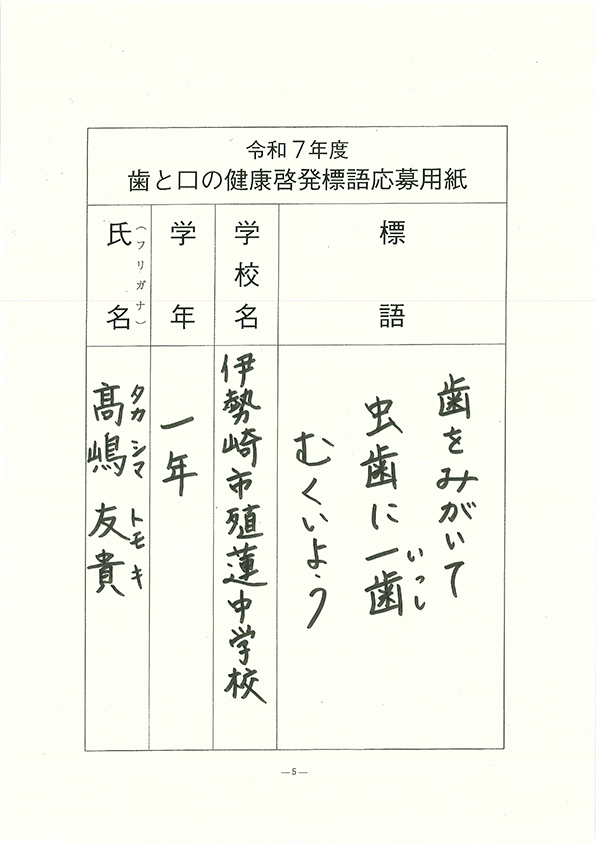 令和7年度
歯と口の健康啓発標語応募用紙
標語
歯をみがいて
虫歯に一歯
いっし
むくいよう
学校名
伊勢崎市殖蓮中学校
学年
一年
氏名
（フリガナ）
タカシマ トモキ
髙嶋 友貴
—5—